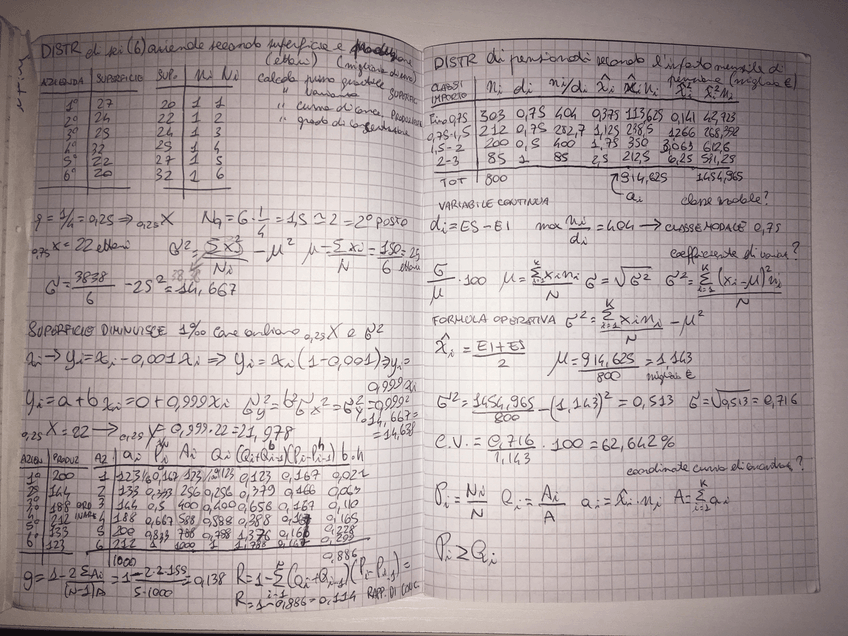 DISTR di sei (6) aziende secondo superficie e produzione
(ettari) (migliaia di euro)
AZIENDA SUPERFICIE SUP. Ni Ni calcolo primo quartile SUPERFICIE
1° 27 20 1 1 " varianza "
2° 24 22 1 2 " curva di conc. PRODUZIONE
3° 25 24 1 3 " grado di concentrazione
4° 32 25 1 4
5° 22 27 1 5
6° 20 32 1 6
q = 1/4 = 0,25 ⇒ 0,25X Nq = 6·1/4 = 1,5 ≃ 2 = 2° posto
0,75X = 22 ettari σ² = Σxi²/Ni − μ² μ = Σxi/N = 150/6 = 25 ettari
σ² = 3838/6 − 25² = 14,667
SUPERFICIE DIMINUISCE 1‰ come cambiano 0,25X e σ²
xi → yi = xi − 0,001xi ⇒ yi = xi(1−0,001) ⇒ yi = 0,999xi
yi = a + b xi = 0 + 0,999xi σ²y = b²σ²x = σ²y = 0,999² · 14,667 = 14,638
0,25X = 22 → 0,25Y = 0,999·22 = 21,978
AZIEN PRODUZ AZ ai Pi Ai Qi (Qi+Qi-1) (Pi−Pi-1) b·h
1° 200 1 123 1/6 0,167 123 0,123 0,123 0,167 0,021
2° 144 2 133 0,333 256 0,256 0,379 0,166 0,063
3° 188 3 144 0,5 400 0,400 0,656 0,167 0,110
4° 212 4 188 0,667 588 0,588 0,988 0,167 0,165
5° 133 5 200 0,833 788 0,788 1,376 0,166 0,228
6° 123 6 212 1 1000 1 1,788 0,167 0,299
1000 0,886
g = 1 − 2ΣAi/(N−1)A = 1 − 2·2155/5·1000 = 0,138 R = 1 − Σ(Qi+Qi-1)(Pi−Pi-1) =
R = 1 − 0,886 = 0,114 RAPP. DI CONC.
DISTR di pensionati secondo l'importo mensile di
pensione (migliaia €)
CLASSI IMPORTO ni di ni/di x̂i x̂ini x̂i² x̂i²ni
Fino 0,75 303 0,75 404 0,375 113,625 0,141 42,723
0,75-1,5 212 0,75 282,7 1,125 238,5 1266 268,392
1,5-2 200 0,5 400 1,75 350 3,063 612,6
2-3 85 1 85 2,5 212,5 6,25 531,25
TOT 800 914,625 1454,965
ai classe modale?
VARIABILE CONTINUA
di = ES − EI max ni/di = 404 → CLASSE MODALE 0,75
coefficiente di variaz?
σ/μ · 100 μ = Σxini/N σ = √σ² σ² = Σ(xi−μ)²ni/N
FORMULA OPERATIVA σ² = Σxini/N − μ²
x̂i = EI+ES/2 μ = 914,625/800 = 1,143 migliaia €
σ² = 1454,965/800 − (1,143)² = 0,513 σ = √0,513 = 0,716
C.V. = 0,716/1,143 · 100 = 62,642%
coordinate curva di concentraz?
Pi = Ni/N Qi = Ai/A ai = x̂i·ni A = Σai
Pi ≥ Qi